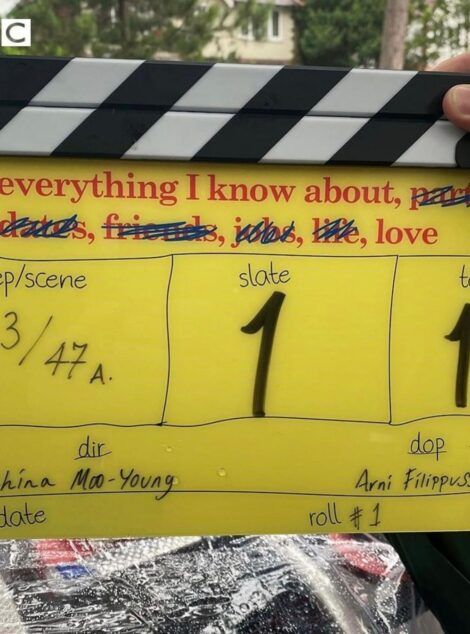 C
everything I know about, part
dates, friends, jobs, life, love
ep/scene slate
3/47A. 1 1
dir dop
hina Moo-Young Arni Filippuss
date roll #1